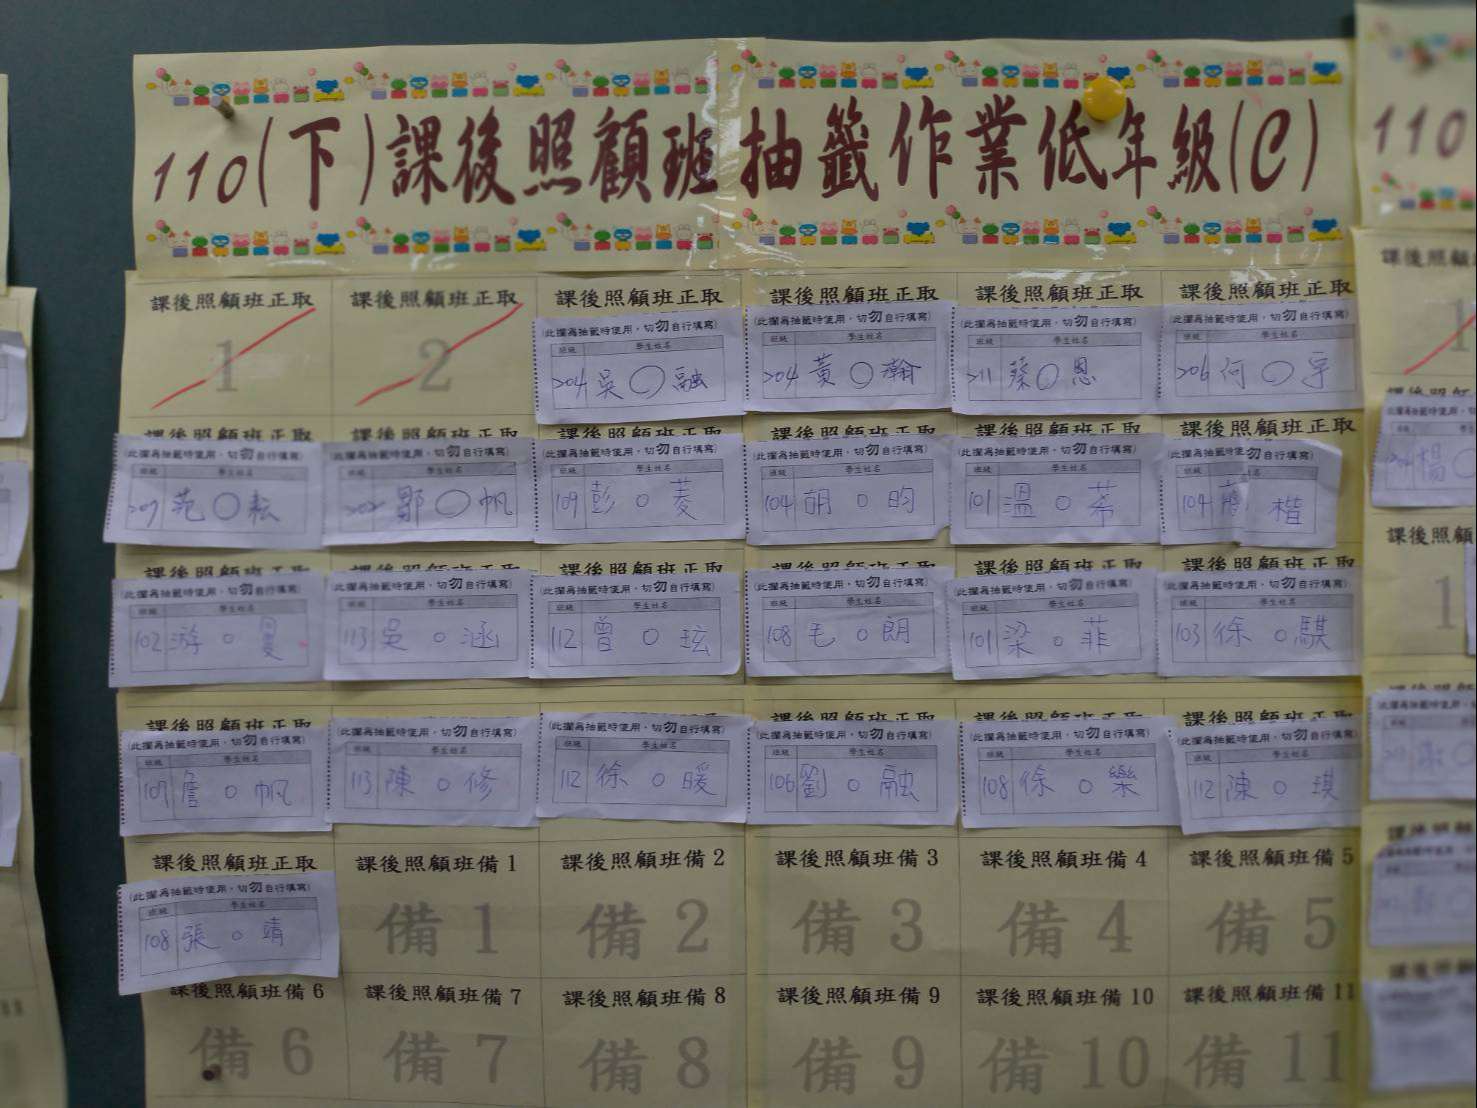 110(下)課後照顧班抽籤作業低年級(C)
110
課後照顧班正取 課後照顧班正取 課後照顧班正取 課後照顧班正取 課後照顧班正取 課後照顧班正取
1 2
(此欄為抽籤時使用，切勿自行填寫) (此欄為抽籤時使用，切勿自行填寫) (此欄為抽籤時使用，切勿自行填寫) (此欄為抽籤時使用，切勿自行填寫)
班級 學生姓名 班級 學生姓名 班級 學生姓名 班級 學生姓名
204 吳○融 204 黃○瀚 211 蔡○恩 206 何○宇
課後照顧班正取 課後照顧班正取 課後照顧班正取 課後照顧班正取 課後照顧班正取 課後照顧班正取
(此欄為抽籤時使用，切勿自行填寫) (此欄為抽籤時使用，切勿自行填寫) (此欄為抽籤時使用，切勿自行填寫) (此欄為抽籤時使用，切勿自行填寫) (此欄為抽籤時使用，切勿自行填寫) (此欄為抽籤時使用，切勿自行填寫)
班級 學生姓名 班級 學生姓名 班級 學生姓名 班級 學生姓名 班級 學生姓名 班級 學生姓名
207 范○耘 202 鄒○帆 109 彭○菱 104 胡○昀 101 溫○希 104 楷
課後照顧班正取 課後照顧班正取 課後照顧班正取 課後照顧班正取 課後照顧班正取 課後照顧班正取
(此欄為抽籤時使用，切勿自行填寫) (此欄為抽籤時使用，切勿自行填寫) (此欄為抽籤時使用，切勿自行填寫) (此欄為抽籤時使用，切勿自行填寫) (此欄為抽籤時使用，切勿自行填寫) (此欄為抽籤時使用，切勿自行填寫)
班級 學生姓名 班級 學生姓名 班級 學生姓名 班級 學生姓名 班級 學生姓名 班級 學生姓名
102 游○ 113 吳○涵 112 曾○玹 108 毛○朗 101 梁○菲 103 徐○騏
課後照顧班正取 課後照顧班正取 課後照顧班正取 課後照顧班正取 課後照顧班正取 課後照顧班正取
(此欄為抽籤時使用，切勿自行填寫) (此欄為抽籤時使用，切勿自行填寫) (此欄為抽籤時使用，切勿自行填寫) (此欄為抽籤時使用，切勿自行填寫) (此欄為抽籤時使用，切勿自行填寫) (此欄為抽籤時使用，切勿自行填寫)
班級 學生姓名 班級 學生姓名 班級 學生姓名 班級 學生姓名 班級 學生姓名 班級 學生姓名
109 詹○帆 113 陳○修 112 徐○暖 106 劉○融 108 徐○樂 112 陳○琪
課後照顧班正取 課後照顧班備1 課後照顧班備2 課後照顧班備3 課後照顧班備4 課後照顧班備5
(此欄為抽籤時使用，切勿自行填寫)
班級 學生姓名
108 張○靖 備1 備2 備3 備4 備5
課後照顧班備6 課後照顧班備7 課後照顧班備8 課後照顧班備9 課後照顧班備10 課後照顧班備11
備6 備7 備8 備9 備10 備11